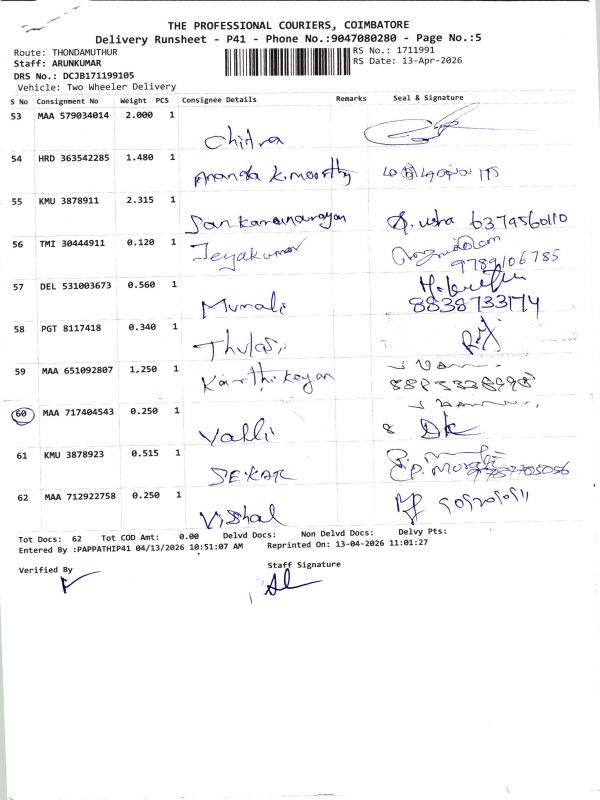 THE PROFESSIONAL COURIERS, COIMBATORE
Delivery Runsheet - P41 - Phone No.:9047080280 - Page No.:5
Route: THONDAMUTHUR RS No.: 1711991
Staff: ARUNKUMAR RS Date: 13-Apr-2026
DRS No.: DCJB171199105
Vehicle: Two Wheeler Delivery
S No Consignment No Weight PCS Consignee Details Remarks Seal & Signature
53 MAA 579034014 2.000 1
Chitra
54 HRD 363542285 1.480 1
Ananda K.moorthy
55 KMU 3878911 2.315 1
Sankaranarayan S. usha 6379560110
56 TMI 30444911 0.120 1
Jeyakumar
9789106785
57 DEL 531003673 0.560 1
Murali 8838733174
58 PGT 8117418 0.340 1
Thulasi
59 MAA 651092807 1,250 1
Karthikeyan
60 MAA 717404543 0.250 1
Valli
61 KMU 3878923 0.515 1
SEKAR
62 MAA 712922758 0.250 1
Vishal
Tot Docs: 62 Tot COD Amt: 0.00 Delvd Docs: Non Delvd Docs: Delvy Pts:
Entered By :PAPPATHIP41 04/13/2026 10:51:07 AM Reprinted On: 13-04-2026 11:01:27
Verified By Staff Signature